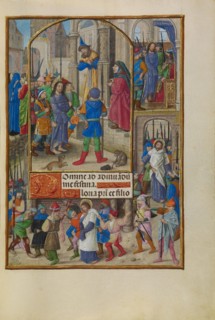 Domine ad adiuuandū
me festina.
loria pri et filio